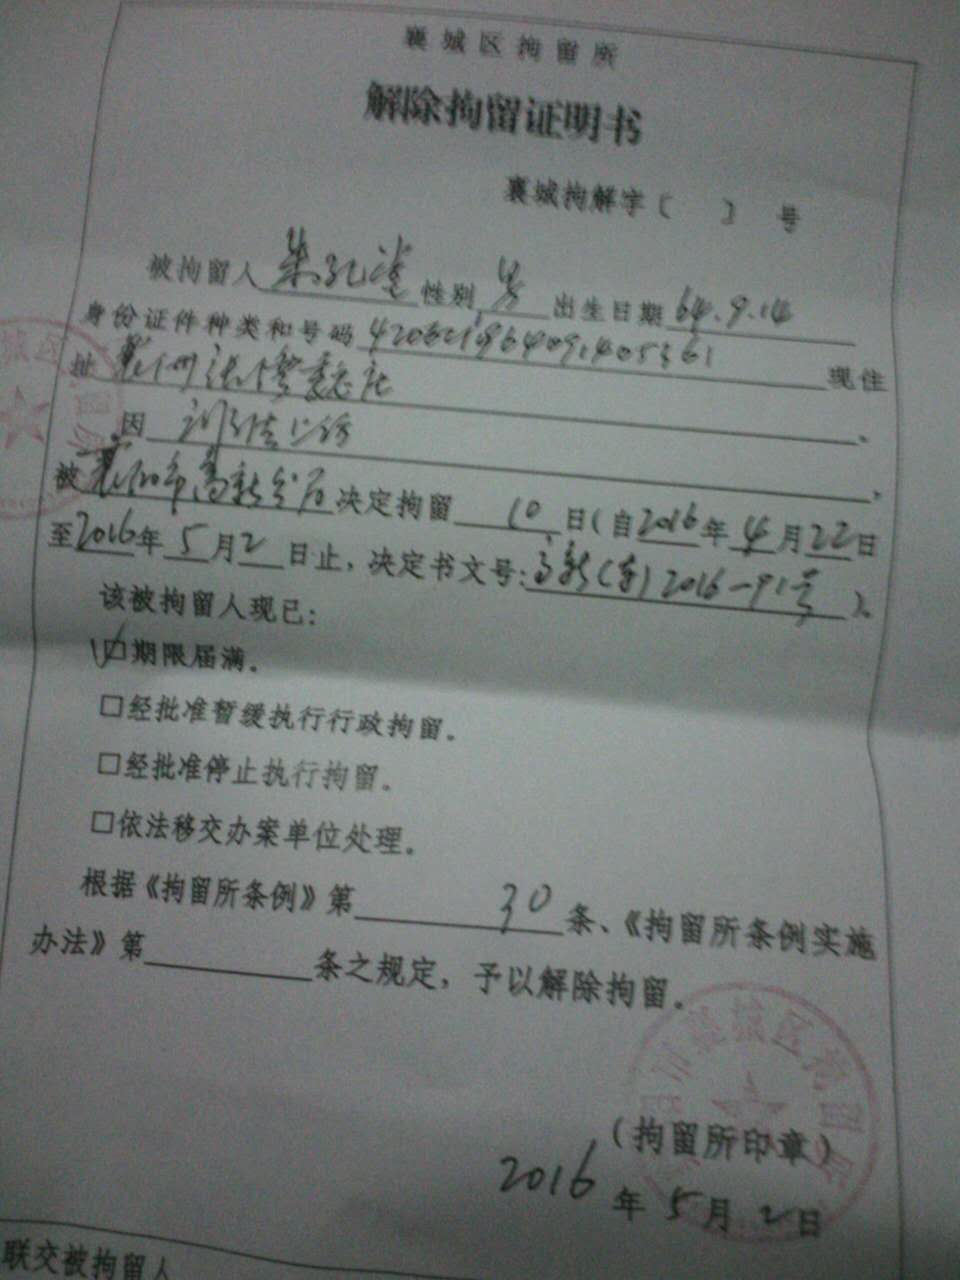 襄城区拘留所
解除拘留证明书
襄城拘解字〔 〕 号
被拘留人 性别 男 出生日期 64.9.14
身份证件种类和号码 现住
址
因
被襄阳市高新分局决定拘留 10 日(自2016年4月22日
至2016年5月2日止,决定书文号:高新( )2016-91号)。
该被拘留人现已:
☑期限届满。
□经批准暂缓执行行政拘留。
□经批准停止执行拘留。
□依法移交办案单位处理。
根据《拘留所条例》第 30 条、《拘留所条例实施
办法》第 条之规定,予以解除拘留。
(拘留所印章)
2016年5月2日
联交被拘留人